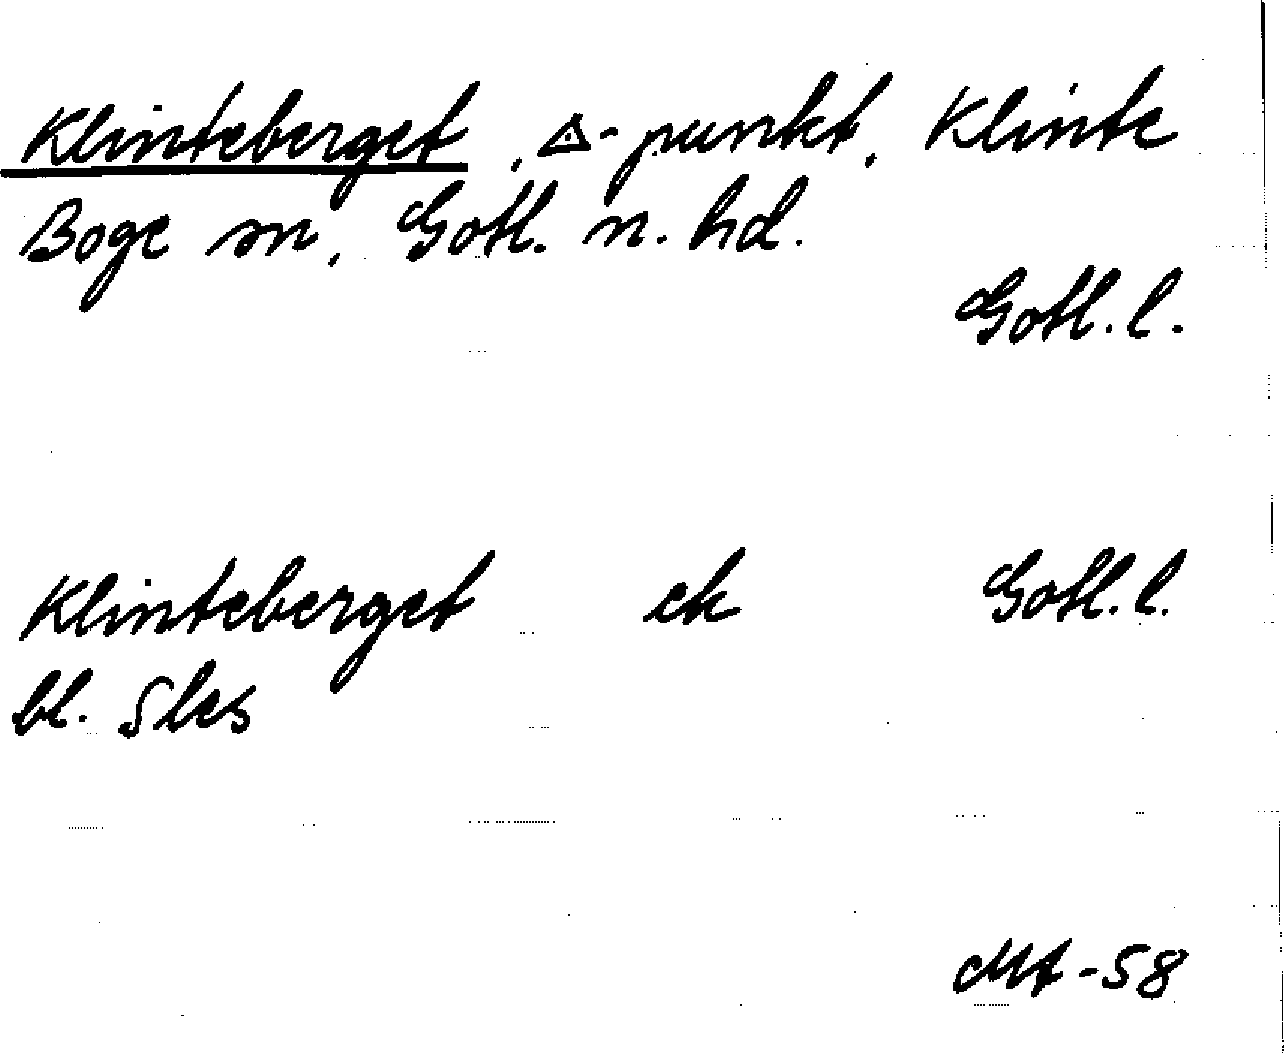 Klinteberget, △-punkt, Klinte
Boge sn, Gotl. n. hd.
Gotl. l.
Klinteberget ek Gotl. l.
bl. Sles
Mt-58